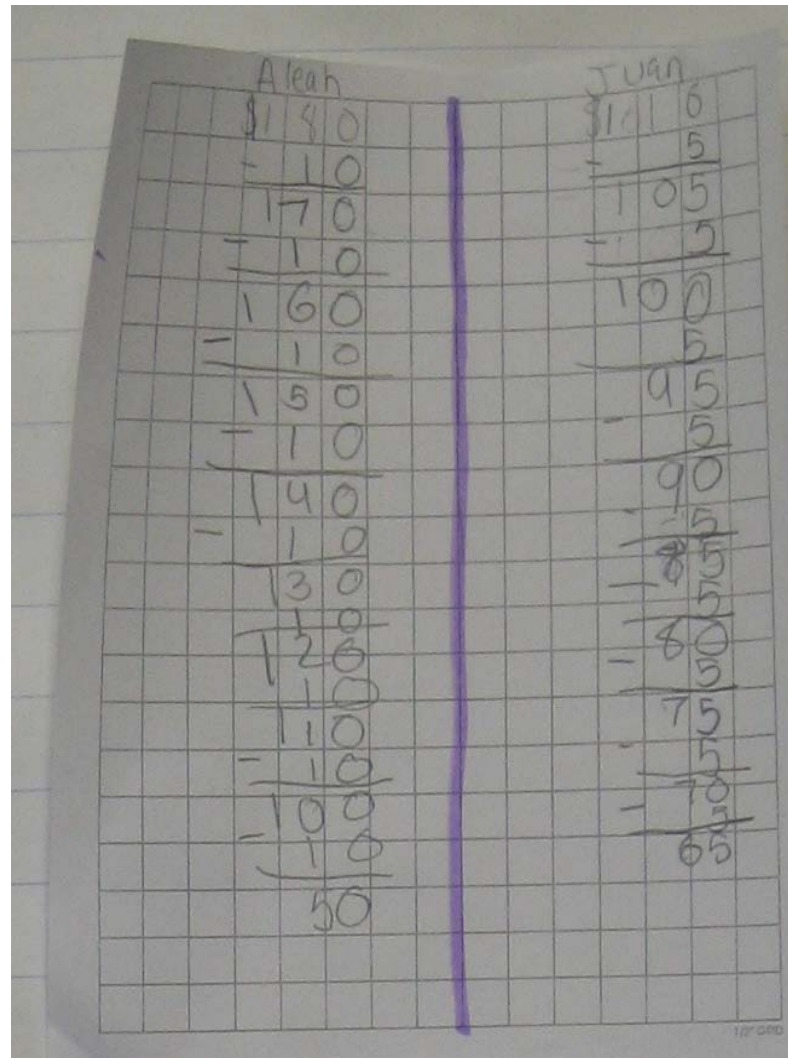 Aleah
$180
- 10
170
- 10
160
- 10
150
- 10
140
- 10
130
10
120
10
110
- 10
100
- 10
50
Juan
- 5
105
- 5
100
5
95
- 5
90
- 5
85
- 5
80
- 5
75
- 5
70
- 5
65